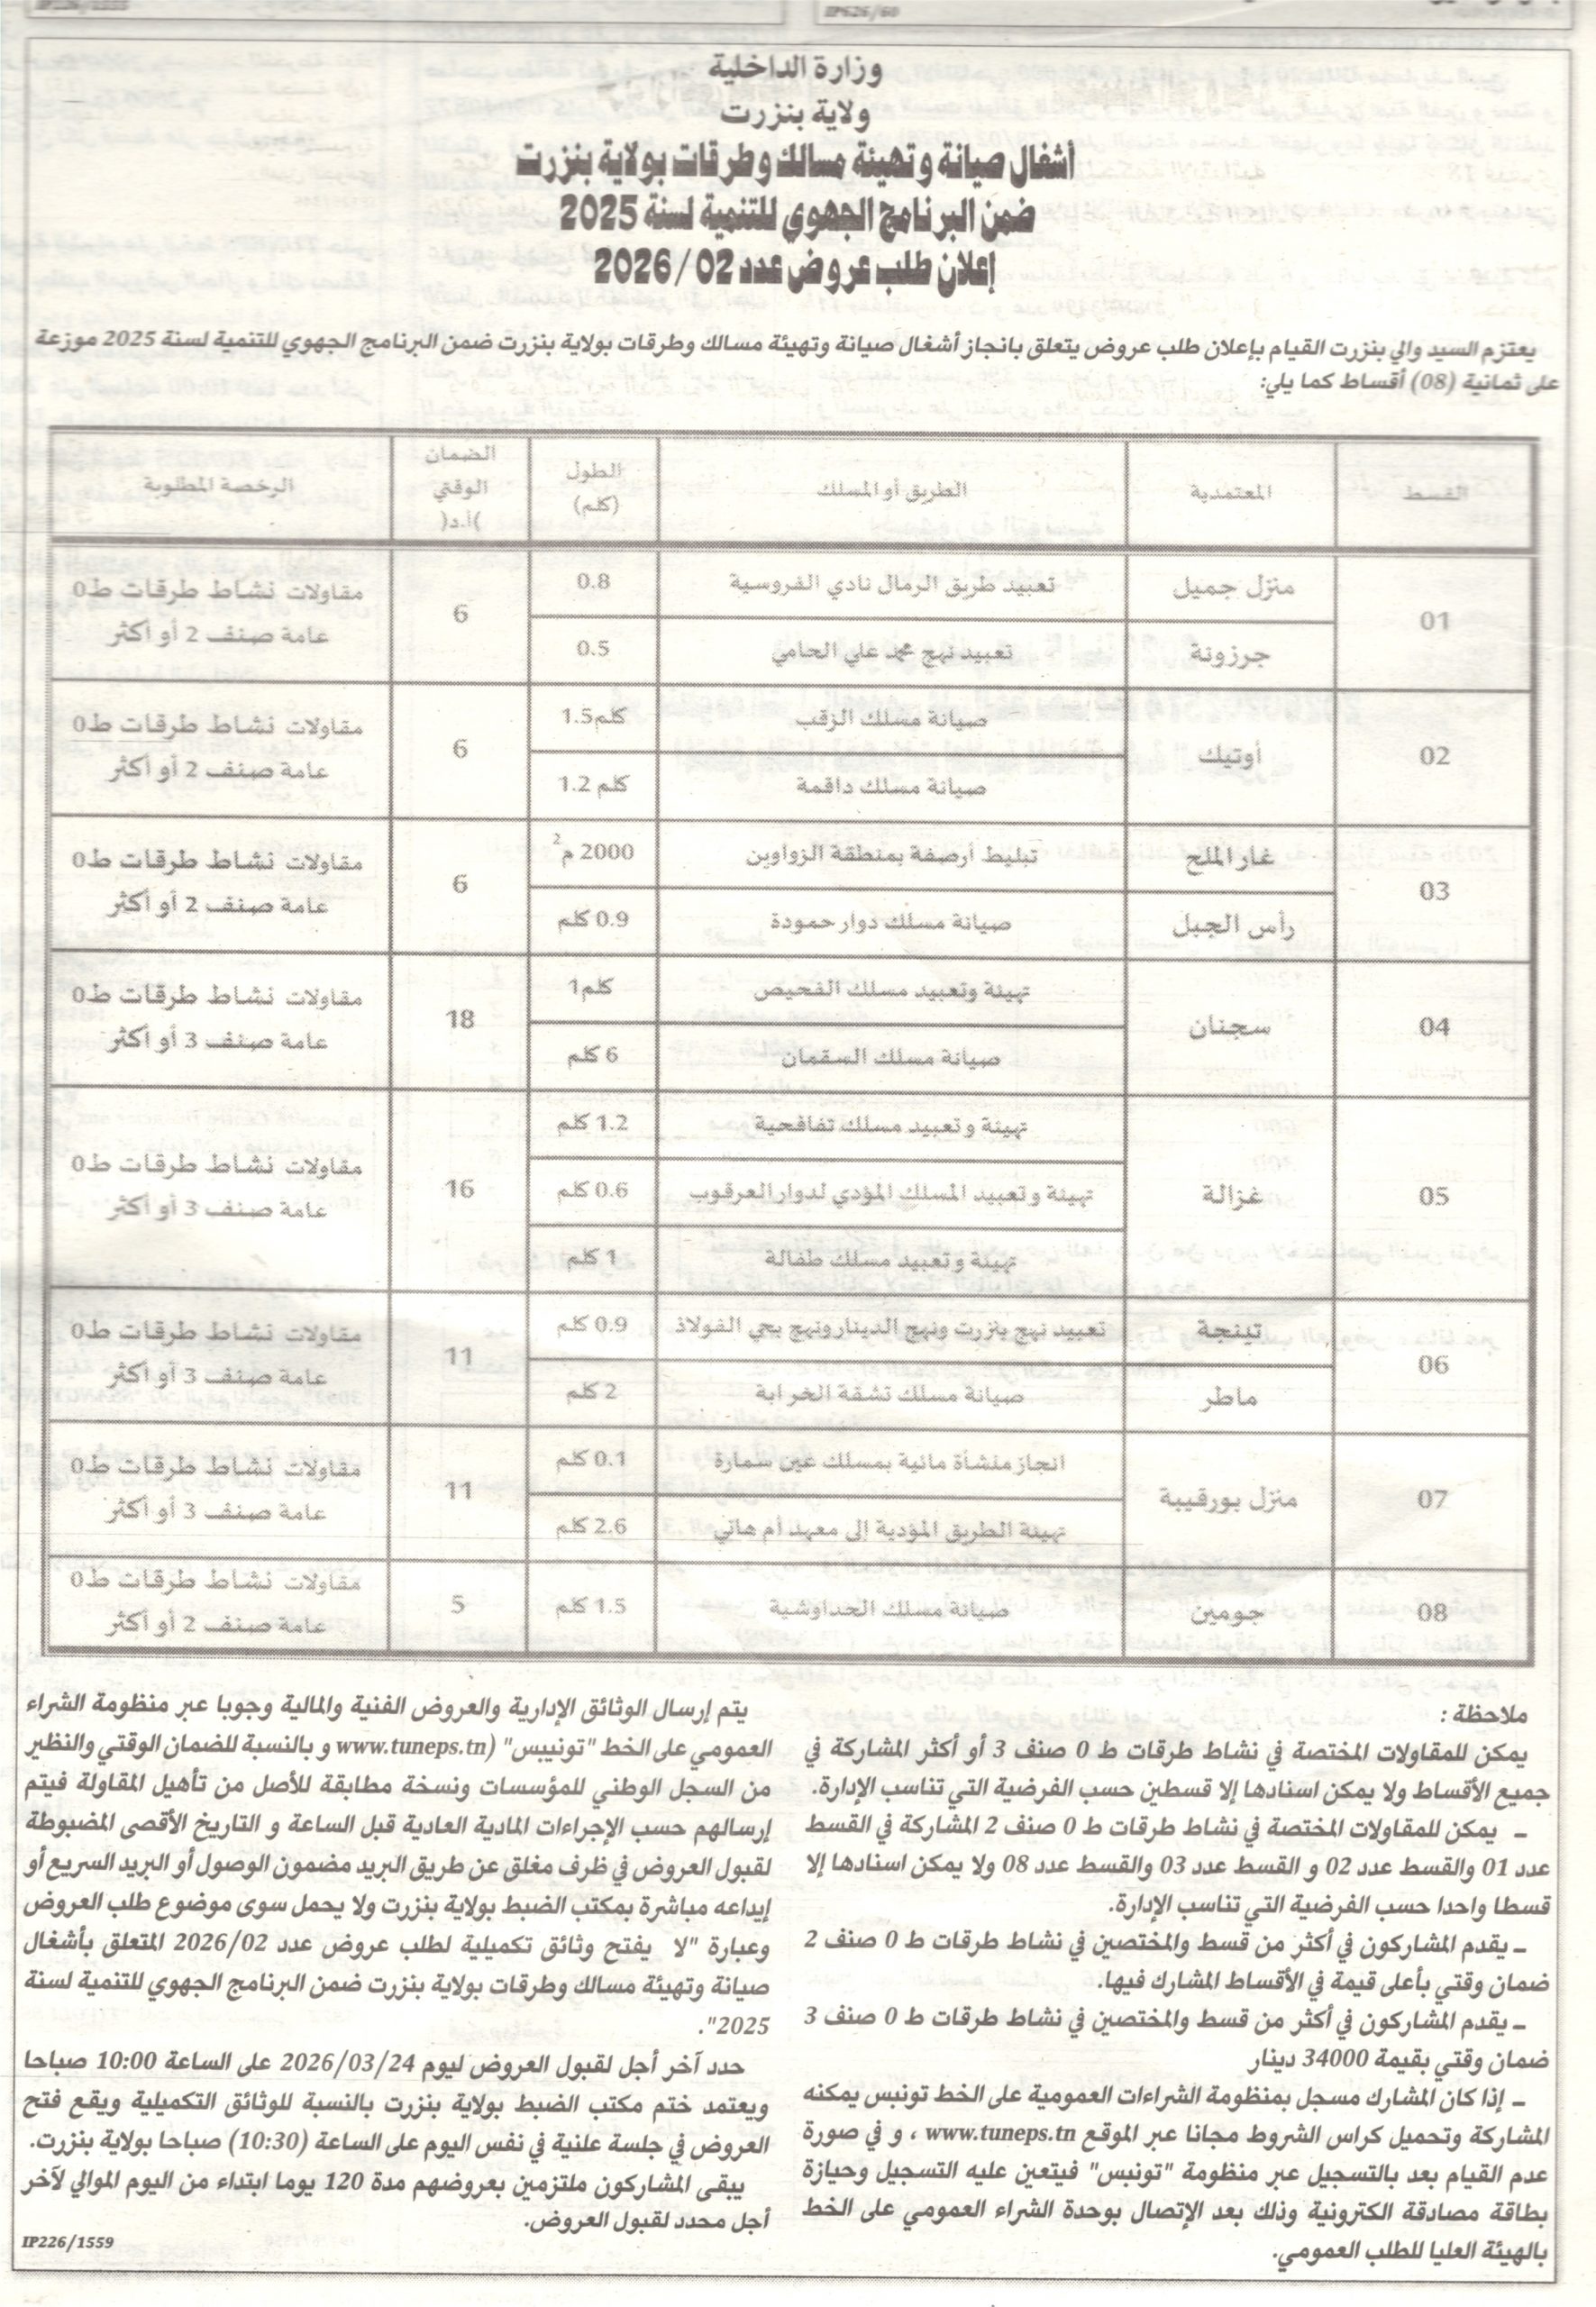 IP626/60
وزارة الداخلية
ولاية بنزرت
أشغال صيانة وتهيئة مسالك وطرقات بولاية بنزرت
ضمن البرنامج الجهوي للتنمية لسنة 2025
إعلان طلب عروض عدد 02 /2026
يعتزم السيد والي بنزرت القيام بإعلان طلب عروض يتعلق بانجاز أشغال صيانة وتهيئة مسالك وطرقات بولاية بنزرت ضمن البرنامج الجهوي للتنمية لسنة 2025 موزعة
على ثمانية (08) أقساط كما يلي:
القسط المعتمدية الطريق أو المسلك الطول (كلم) الضمان الوقتي )أ.د( الرخصة المطلوبة
01 منزل جميل تعبيد طريق الرمال نادي الفروسية 0.8 6 مقاولات نشاط طرقات ط0 عامة صنف 2 أو أكثر
جرزونة تعبيد نهج محمد علي الحامي 0.5
02 أوتيك صيانة مسلك الزقب 1.5كلم 6 مقاولات نشاط طرقات ط0 عامة صنف 2 أو أكثر
صيانة مسلك داقمة 1.2 كلم
03 غار الملح تبليط أرصفة بمنطقة الزواوين 2000 م2 6 مقاولات نشاط طرقات ط0 عامة صنف 2 أو أكثر
رأس الجبل صيانة مسلك دوار حمودة 0.9 كلم
04 سجنان تهيئة وتعبيد مسلك الفحيص 1كلم 18 مقاولات نشاط طرقات ط0 عامة صنف 3 أو أكثر
صيانة مسلك السقمان 6 كلم
05 غزالة تهيئة وتعبيد مسلك تفافحية 1.2 كلم 16 مقاولات نشاط طرقات ط0 عامة صنف 3 أو أكثر
تهيئة وتعبيد المسلك المؤدي لدوار العرقوب 0.6 كلم
تهيئة وتعبيد مسلك طفالة 1 كلم
06 تينجة تعبيد نهج بنزرت ونهج الدينار ونهج بحي الفولاذ 0.9 كلم 11 مقاولات نشاط طرقات ط0 عامة صنف 3 أو أكثر
ماطر صيانة مسلك تشقة الخرابة 2 كلم
07 منزل بورقيبة انجاز منشأة مائية بمسلك عين سمارة 0.1 كلم 11 مقاولات نشاط طرقات ط0 عامة صنف 3 أو أكثر
تهيئة الطريق المؤدية إلى معهد أم هاني 2.6 كلم
08 جومين صيانة مسلك الحداوشية 1.5 كلم 5 مقاولات نشاط طرقات ط0 عامة صنف 2 أو أكثر
ملاحظة :
يمكن للمقاولات المختصة في نشاط طرقات ط 0 صنف 3 أو أكثر المشاركة في
جميع الأقساط ولا يمكن اسنادها إلا قسطين حسب الفرضية التي تناسب الإدارة.
ـ يمكن للمقاولات المختصة في نشاط طرقات ط 0 صنف 2 المشاركة في القسط
عدد 01 والقسط عدد 02 و القسط عدد 03 والقسط عدد 08 ولا يمكن اسنادها إلا
قسطا واحدا حسب الفرضية التي تناسب الإدارة.
ـ يقدم المشاركون في أكثر من قسط والمختصين في نشاط طرقات ط 0 صنف 2
ضمان وقتي بأعلى قيمة في الأقساط المشارك فيها.
ـ يقدم المشاركون في أكثر من قسط والمختصين في نشاط طرقات ط 0 صنف 3
ضمان وقتي بقيمة 34000 دينار
ـ إذا كان المشارك مسجل بمنظومة الشراءات العمومية على الخط تونبس يمكنه
المشاركة وتحميل كراس الشروط مجانا عبر الموقع www.tuneps.tn ، و في صورة
عدم القيام بعد بالتسجيل عبر منظومة "تونبس" فيتعين عليه التسجيل وحيازة
بطاقة مصادقة الكترونية وذلك بعد الإتصال بوحدة الشراء العمومي على الخط
بالهيئة العليا للطلب العمومي.
يتم إرسال الوثائق الإدارية والعروض الفنية والمالية وجوبا عبر منظومة الشراء
العمومي على الخط "تونيبس" (www.tuneps.tn و بالنسبة للضمان الوقتي والنظير
من السجل الوطني للمؤسسات ونسخة مطابقة للأصل من تأهيل المقاولة فيتم
إرسالهم حسب الإجراءات المادية العادية قبل الساعة و التاريخ الأقصى المضبوطة
لقبول العروض في ظرف مغلق عن طريق البريد مضمون الوصول أو البريد السريع أو
إيداعه مباشرة بمكتب الضبط بولاية بنزرت ولا يحمل سوى موضوع طلب العروض
وعبارة "لا يفتح وثائق تكميلية لطلب عروض عدد 2026/02 المتعلق بأشغال
صيانة وتهيئة مسالك وطرقات بولاية بنزرت ضمن البرنامج الجهوي للتنمية لسنة
2025".
حدد آخر أجل لقبول العروض ليوم 2026/03/24 على الساعة 10:00 صباحا
ويعتمد ختم مكتب الضبط بولاية بنزرت بالنسبة للوثائق التكميلية ويقع فتح
العروض في جلسة علنية في نفس اليوم على الساعة (10:30) صباحا بولاية بنزرت.
يبقى المشاركون ملتزمين بعروضهم مدة 120 يوما ابتداء من اليوم الموالي لآخر
أجل محدد لقبول العروض.
IP226/1559